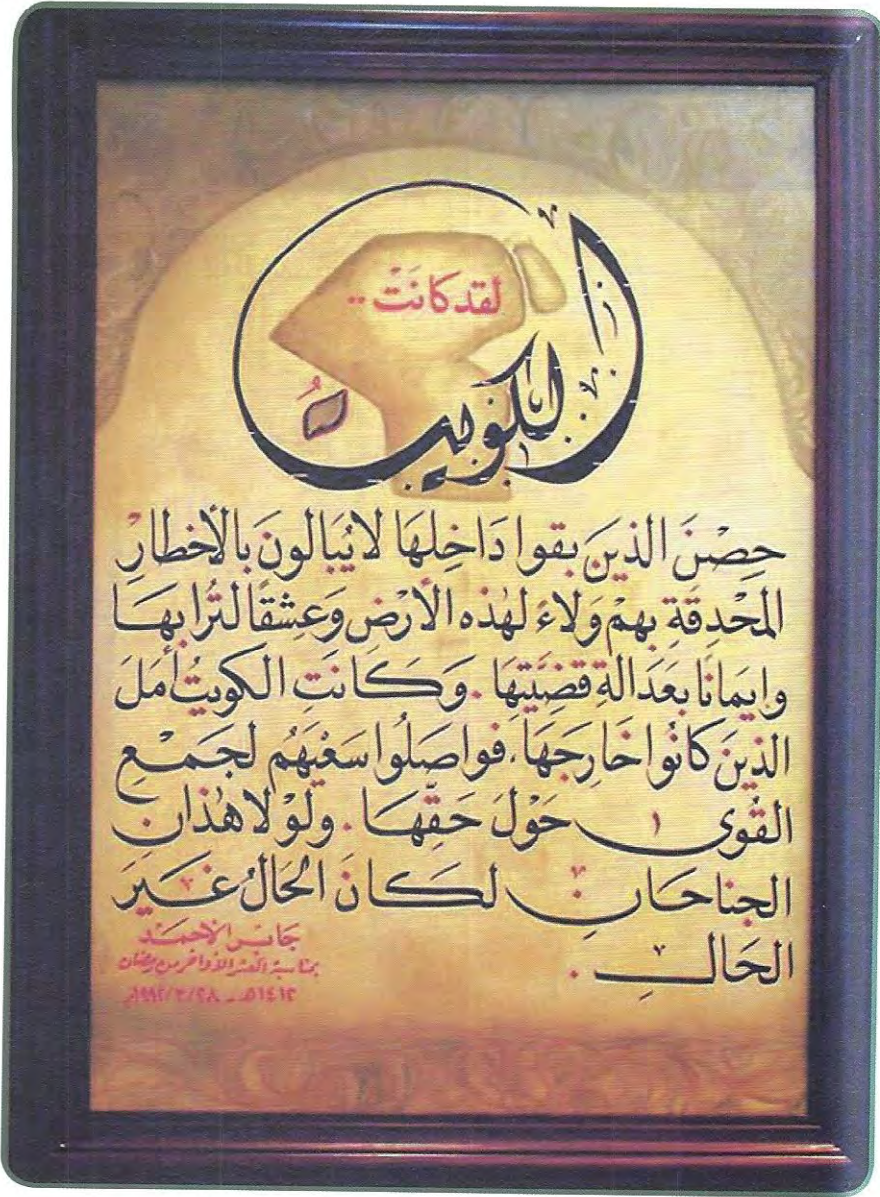 لقد كانَتْ ..
الكويتُ
حِصْنَ الذينَ بقوا دَاخِلهَا لا يُبَالونَ بالأخطارِ
المحْدِقَةِ بهمْ وَلاءً لهٰذه الأرْضِ وَعِشقًا لتُرابهَا
وايمَانًا بعَدَالةِ قضيَّتِهَا . وَكَانَتِ الكويتُ أمَلَ
الذينَ كانُوا خَارِجَهَا، فواصَلُوا سَعْيَهُم لجَمْعِ
القُوى حَوْلَ حَقِّهَا . ولوْلا هٰذانِ
الجناحَانِ لكَانَ الحَالُ غَيرَ
الحَالِ .
جابر الأحمد
بمناسبة العشر الأواخر من رمضان
١٤١٢هـ - ١٩٩٢/٣/٢٨م